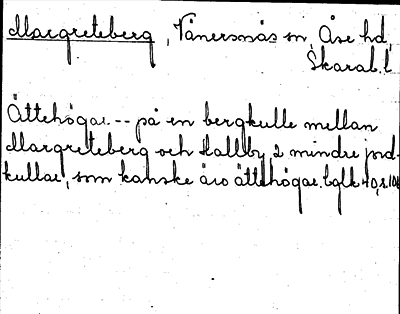 Margreteberg, Vänersnäs sn, Åse hd,
Skarab.l
Ättehögar -- på en bergkulle mellan
Margreteberg och Hallby, 2 mindre jord-
kullar, som kanske äro ättehögar.